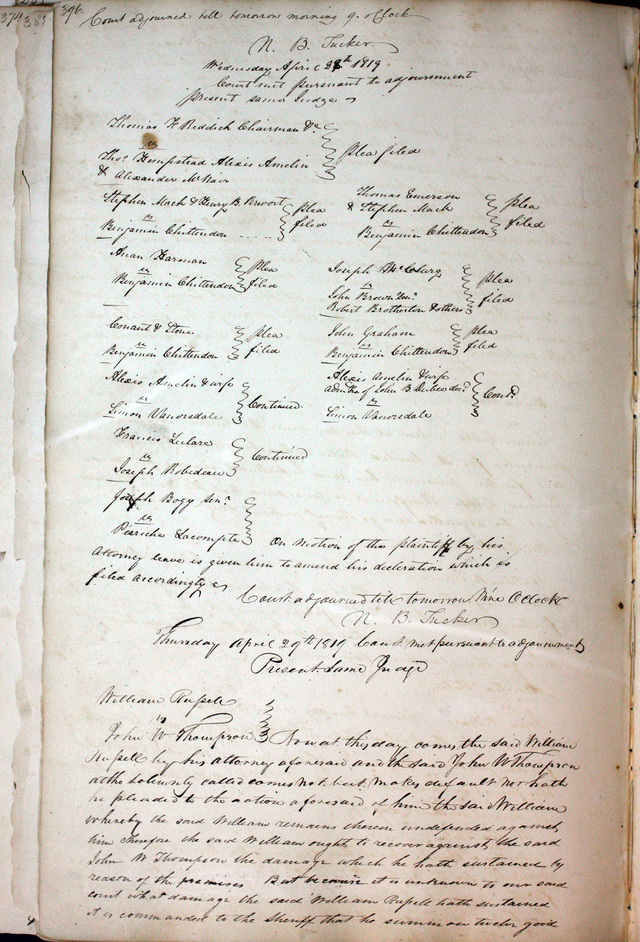 374
381
396
Court adjourned till tomorrow morning 9. oClock
N. B. Tucker
Wednesday April 28th 1819
Court met pursuant to adjournment
present same Judge
Thomas F Reddick Chairman &c
vs
Thos Hempstead Alexis Amelin
& Alexander McNair
plea filed
Stephen Mack & Henry B. Brevoort
vs
Benjamin Chittendon
plea
filed
Thomas Emerson
& Stephen Mack
vs
Benjamin Chittendon
plea
filed
Harman
vs
Benjamin Chittendon
plea
filed
Joseph McClurg
vs
John Brown Senr
Robert Brotherton & others
plea
filed
Conant & Stone
vs
Benjamin Chittendon
plea
filed
John Graham
vs
Benjamin Chittendon
plea
filed
Alexis Amelin & wife
vs
Simon Vanorsdale
Continued
Alexis Amelin & wife
admtrs of John B. decd
vs
Simon Vanorsdale
Contd
Francis Leclare
vs
Joseph Robedeau
Continued
Joseph Bogy Senr
vs
Lacompte
On motion of the plaintiff by his
attorney leave is given him to amend his decleration which is
filed accordingly
Court adjourned till tomorrow Nine OClock
N. B. Tucker
Thursday April 29th 1819 Court met pursuant to adjournment
Present same Judge
William Russell
vs
John W Thompson
Now at this day comes the said William
Russell by his attorney aforesaid and the said John W Thompson
altho solemnly called comes not but makes default nor hath
he pleaded to the action aforesaid of him the said William
whereby the said William remains therein undefended against
him Therefore the said William ought to recover against the said
John W Thompson the damage which he hath sustained by
reason of the premises But because it is unknown to our said
court what damage the said William Russell hath sustained
it is commanded to the Sheriff that he summon twelve good